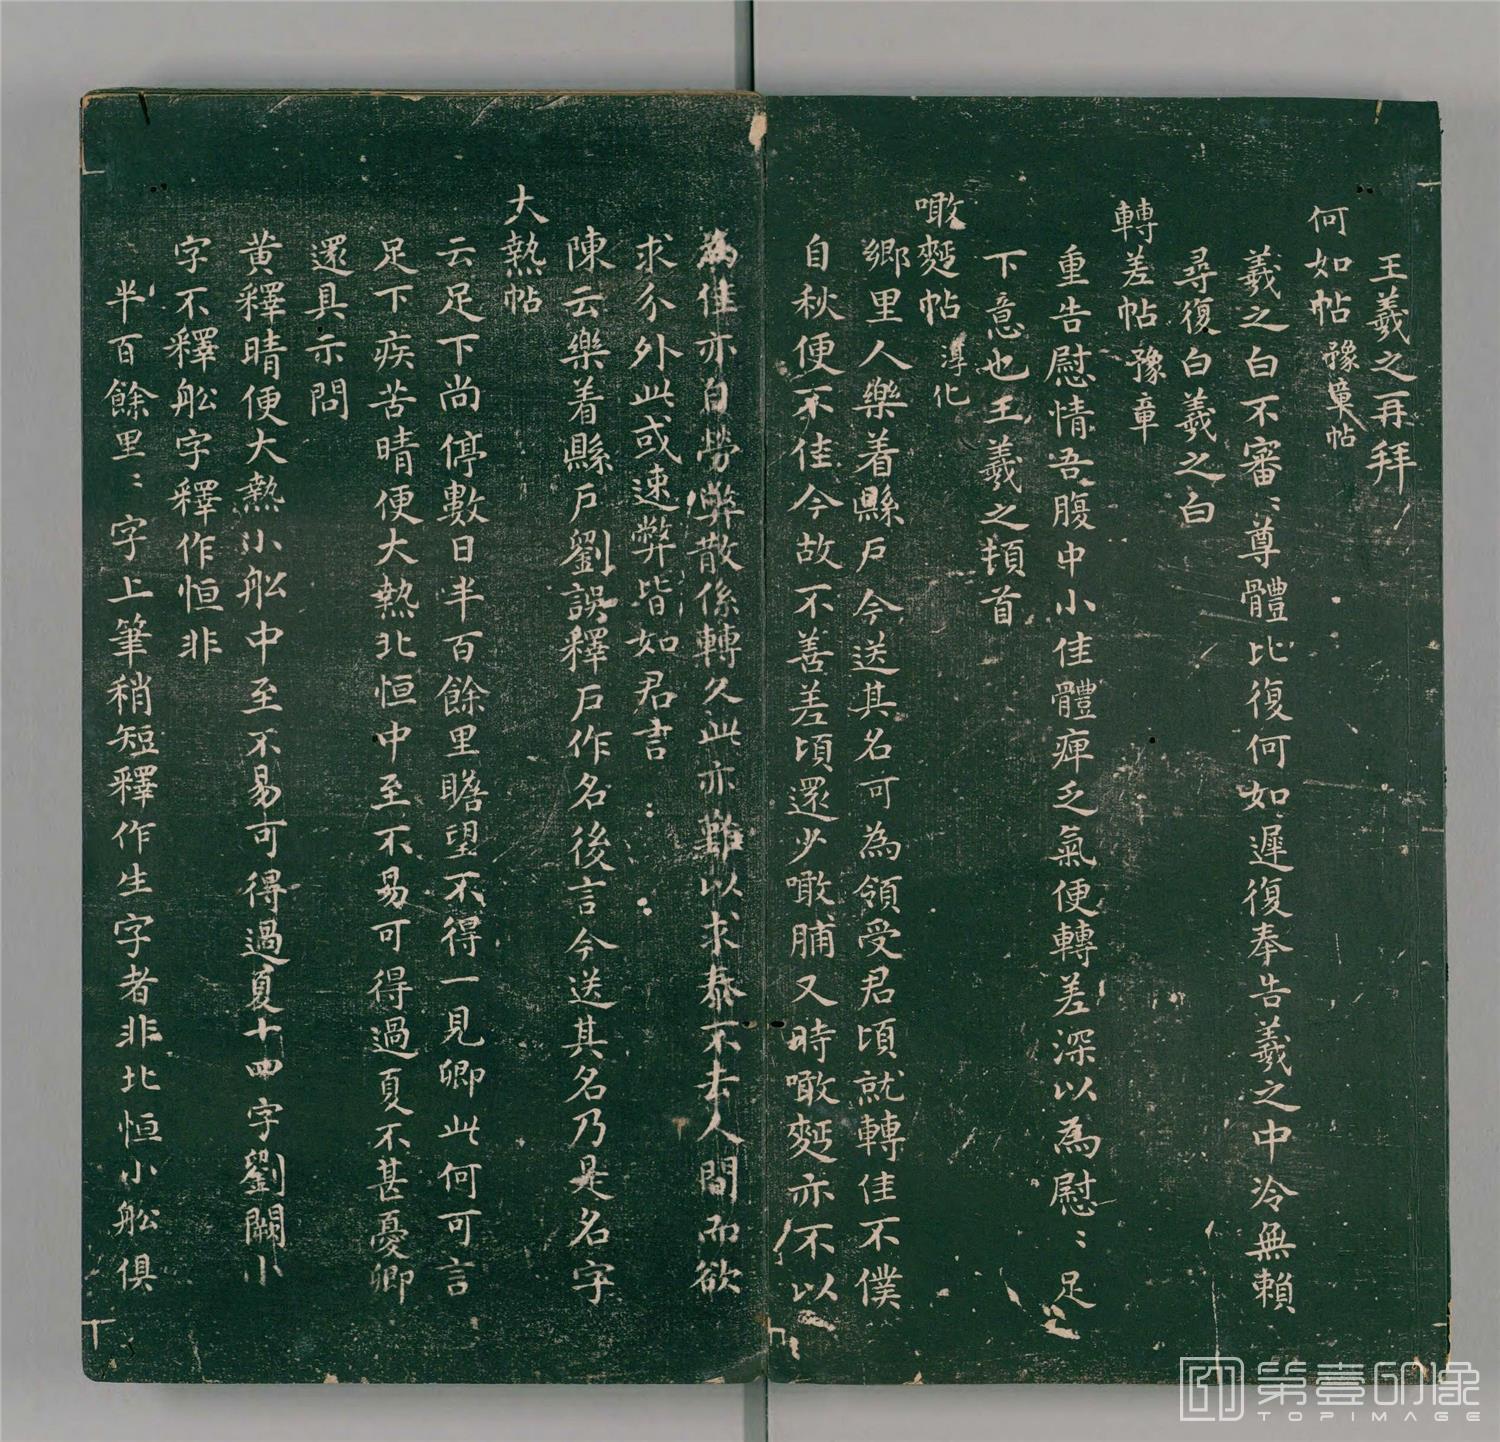 王羲之再拜
何如帖 豫章帖
羲之白不審〻尊體比復何如遲復奉告羲之中冷無賴
尋復白羲之白
轉差帖 豫章
重告慰情吾腹中小佳體痺乏氣便轉差深以為慰〻足
下意也王羲之頓首
噉麫帖 淳化
鄉里人樂着縣戶今送其名可為領受君頃就轉佳不僕
自秋便不佳今故不善差頃還少噉脯又時噉麫亦不以
為佳亦自勞弊散係轉久此亦難以求泰不去人間而欲
求分外此或速弊皆如君書
陳云樂着縣戶劉誤釋戶作名後言今送其名乃是名字
大熱帖
云足下尚停數日半百餘里瞻望不得一見卿此何可言
足下疾苦晴便大熱北恒中至不易可得過夏不甚憂卿
還具示問
黃釋晴便大熱小舩中至不易可得過夏十四字劉闕小
字不釋舩字釋作恒非
半百餘里〻字上筆稍短釋作生字者非北恒小舩俱
第壹印像
TOPIMAGE